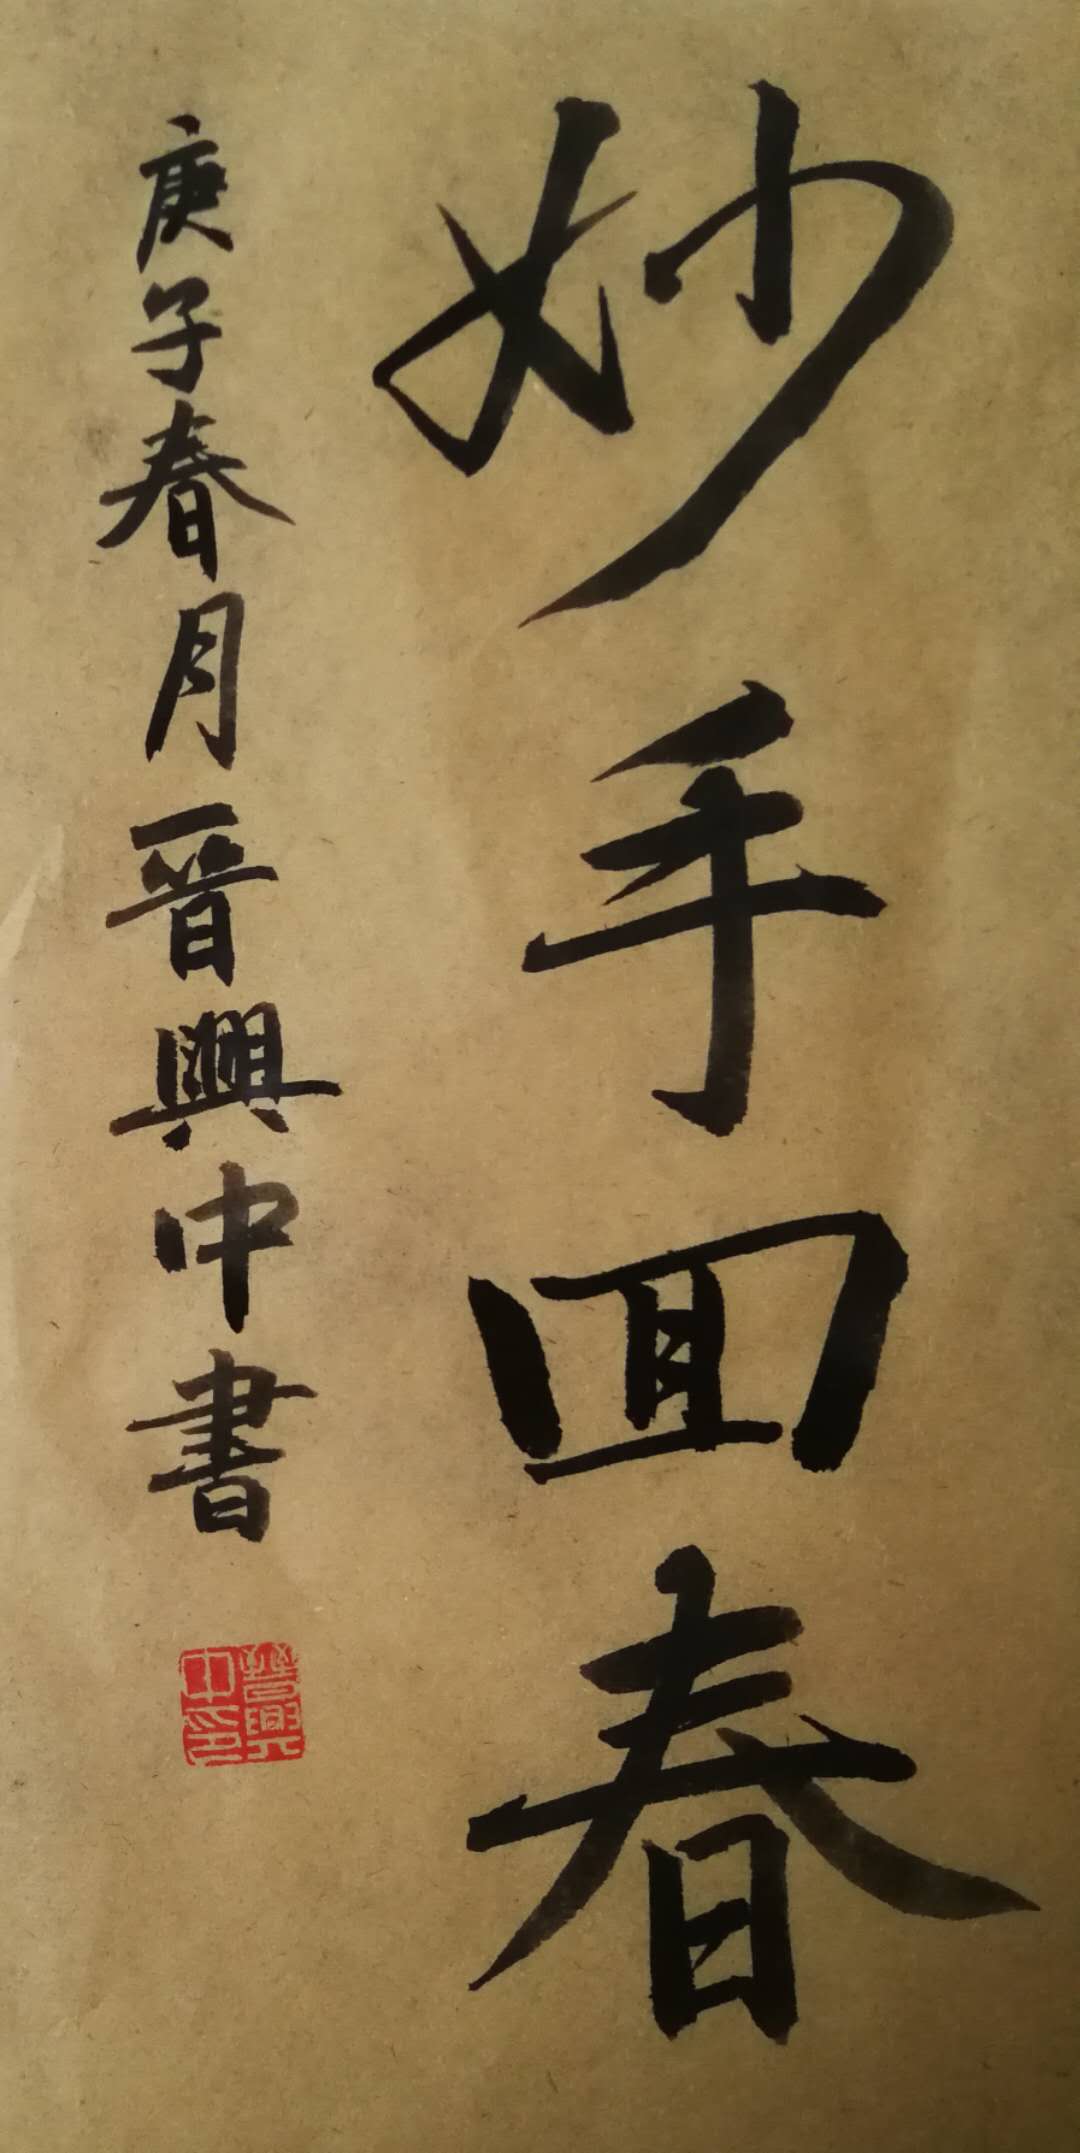 妙手回春
庚子春月晋興中書
晋興中印